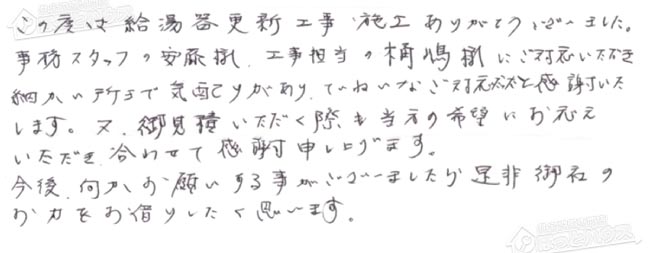 この度は給湯器更新工事、施工ありがとうございました。
事務スタッフの安藤様、工事担当の桶嶋様にご対応いただき
細かい所まで気配りがあり、ていねいなご対応大変感謝いた
します。又、御見積いただく際も当方の希望にお応え
いただき、合わせて感謝申し上げます。
今後、何かお願いする事がございましたら是非御社の
お力をお借りしたく思います。